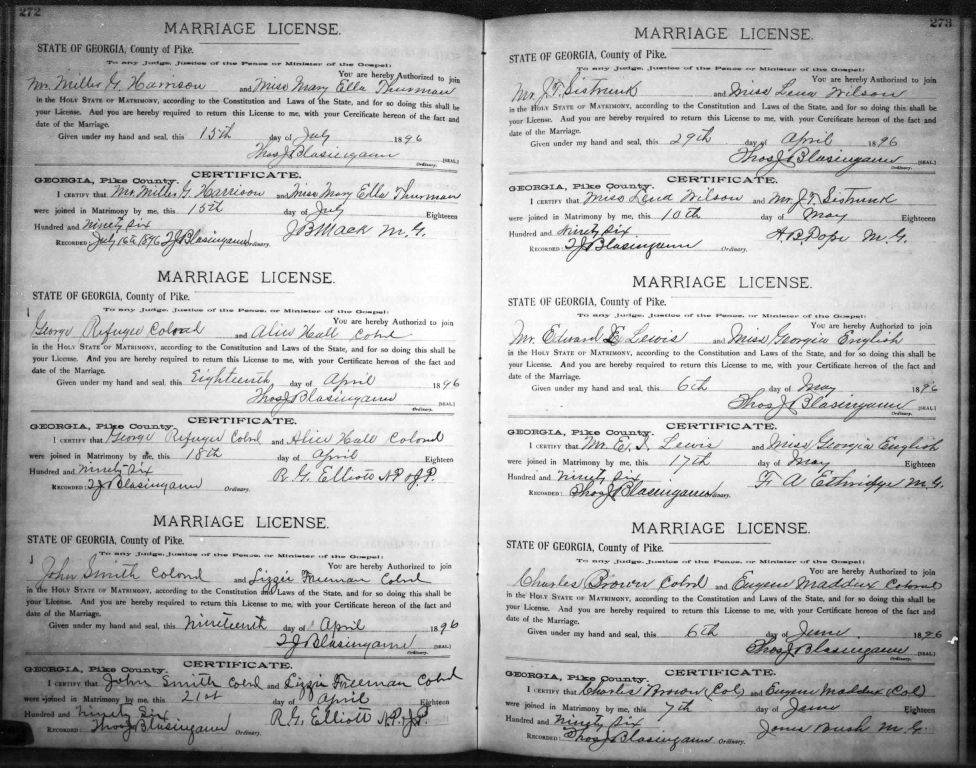 272
MARRIAGE LICENSE.
STATE OF GEORGIA, County of Pike.
To any Judge, Justice of the Peace, or Minister of the Gospel:
You are hereby Authorized to join
Mr. Miller G. Harrison and Miss Mary Ella Thurman
in the HOLY STATE OF MATRIMONY, according to the Constitution and Laws of the State, and for so doing this shall be
your License. And you are hereby required to return this License to me, with your Certificate hereon of the fact and
date of the Marriage.
Given under my hand and seal, this 15th day of July 1896
Thos J Blasingann [SEAL.]
Ordinary.
CERTIFICATE.
GEORGIA, Pike County.
I CERTIFY that Mr. Miller G. Harrison and Miss Mary Ella Thurman
were joined in Matrimony by me, this 15th day of July Eighteen
Hundred and Ninety Six J B Mack M. G.
RECORDED July 16th 1896 T J Blasingann Ordinary.
MARRIAGE LICENSE.
STATE OF GEORGIA, County of Pike.
To any Judge, Justice of the Peace, or Minister of the Gospel:
You are hereby Authorized to join
George Refugee Colored and Alice Hall Cold
in the HOLY STATE OF MATRIMONY, according to the Constitution and Laws of the State, and for so doing this shall be
your License. And you are hereby required to return this License to me, with your Certificate hereon of the fact and
date of the Marriage.
Given under my hand and seal, this Eighteenth day of April 1896
Thos J Blasingann [SEAL.]
Ordinary.
CERTIFICATE.
GEORGIA, Pike County.
I CERTIFY that George Refugee Cold and Alice Hall Colord
were joined in Matrimony by me, this 18th day of April Eighteen
Hundred and Ninety Six R. G. Elliott N.P. & J.P.
RECORDED: T J Blasingann Ordinary.
MARRIAGE LICENSE.
STATE OF GEORGIA, County of Pike.
To any Judge, Justice of the Peace, or Minister of the Gospel:
You are hereby Authorized to join
John Smith Colord and Lizzie Freeman Colrd
in the HOLY STATE OF MATRIMONY, according to the Constitution and Laws of the State, and for so doing this shall be
your License. And you are hereby required to return this License to me, with your Certificate hereon of the fact and
date of the Marriage.
Given under my hand and seal, this Nineteenth day of April 1896
T J Blasingann [SEAL.]
Ordinary.
CERTIFICATE.
GEORGIA, Pike County.
I CERTIFY that John Smith Cold and Lizzie Freeman Colrd
were joined in Matrimony by me, this 21st day of April Eighteen
Hundred and Ninety Six R. G. Elliott N.P. & J.P.
RECORDED: Thos J Blasingann Ordinary.
273
MARRIAGE LICENSE.
STATE OF GEORGIA, County of Pike.
To any Judge, Justice of the Peace, or Minister of the Gospel:
You are hereby Authorized to join
Mr. J. T. Sistrunk and Miss Lena Wilson
in the HOLY STATE OF MATRIMONY, according to the Constitution and Laws of the State, and for so doing this shall be
your License. And you are hereby required to return this License to me, with your Certificate hereon of the fact and
date of the Marriage.
Given under my hand and seal, this 29th day of April 1896
Thos J Blasingann [SEAL.]
Ordinary.
CERTIFICATE.
GEORGIA, Pike County.
I CERTIFY that Miss Lena Wilson and Mr. J. T. Sistrunk
were joined in Matrimony by me, this 10th day of May Eighteen
Hundred and Ninety Six. A. B. Pope M. G.
RECORDED: T J Blasingann Ordinary.
MARRIAGE LICENSE.
STATE OF GEORGIA, County of Pike.
To any Judge, Justice of the Peace, or Minister of the Gospel:
You are hereby Authorized to join
Mr. Edward E Lewis and Miss Georgia English
in the HOLY STATE OF MATRIMONY, according to the Constitution and Laws of the State, and for so doing this shall be
your License. And you are hereby required to return this License to me, with your Certificate hereon of the fact and
date of the Marriage.
Given under my hand and seal, this 6th day of May 1896
Thos J Blasingann [SEAL.]
Ordinary.
CERTIFICATE.
GEORGIA, Pike County.
I CERTIFY that Mr. E. I. Lewis and Miss Georgia English
were joined in Matrimony by me, this 17th day of May Eighteen
Hundred and Ninety Six F. A Ethridge M. G.
RECORDED: Thos J Blasingann Ordinary.
MARRIAGE LICENSE.
STATE OF GEORGIA, County of Pike.
To any Judge, Justice of the Peace, or Minister of the Gospel:
You are hereby Authorized to join
Charles Brown Colrd and Eugene Maddux Colored
in the HOLY STATE OF MATRIMONY, according to the Constitution and Laws of the State, and for so doing this shall be
your License. And you are hereby required to return this License to me, with your Certificate hereon of the fact and
date of the Marriage.
Given under my hand and seal, this 6th day of June 1896
Thos J Blasingann [SEAL.]
Ordinary.
CERTIFICATE.
GEORGIA, Pike County.
I CERTIFY that Charles Brown (Col) and Eugene Maddux (Col)
were joined in Matrimony by me, this 7th day of June Eighteen
Hundred and Ninety Six Jones Bush M. G.
RECORDED: Thos J Blasingann Ordinary.